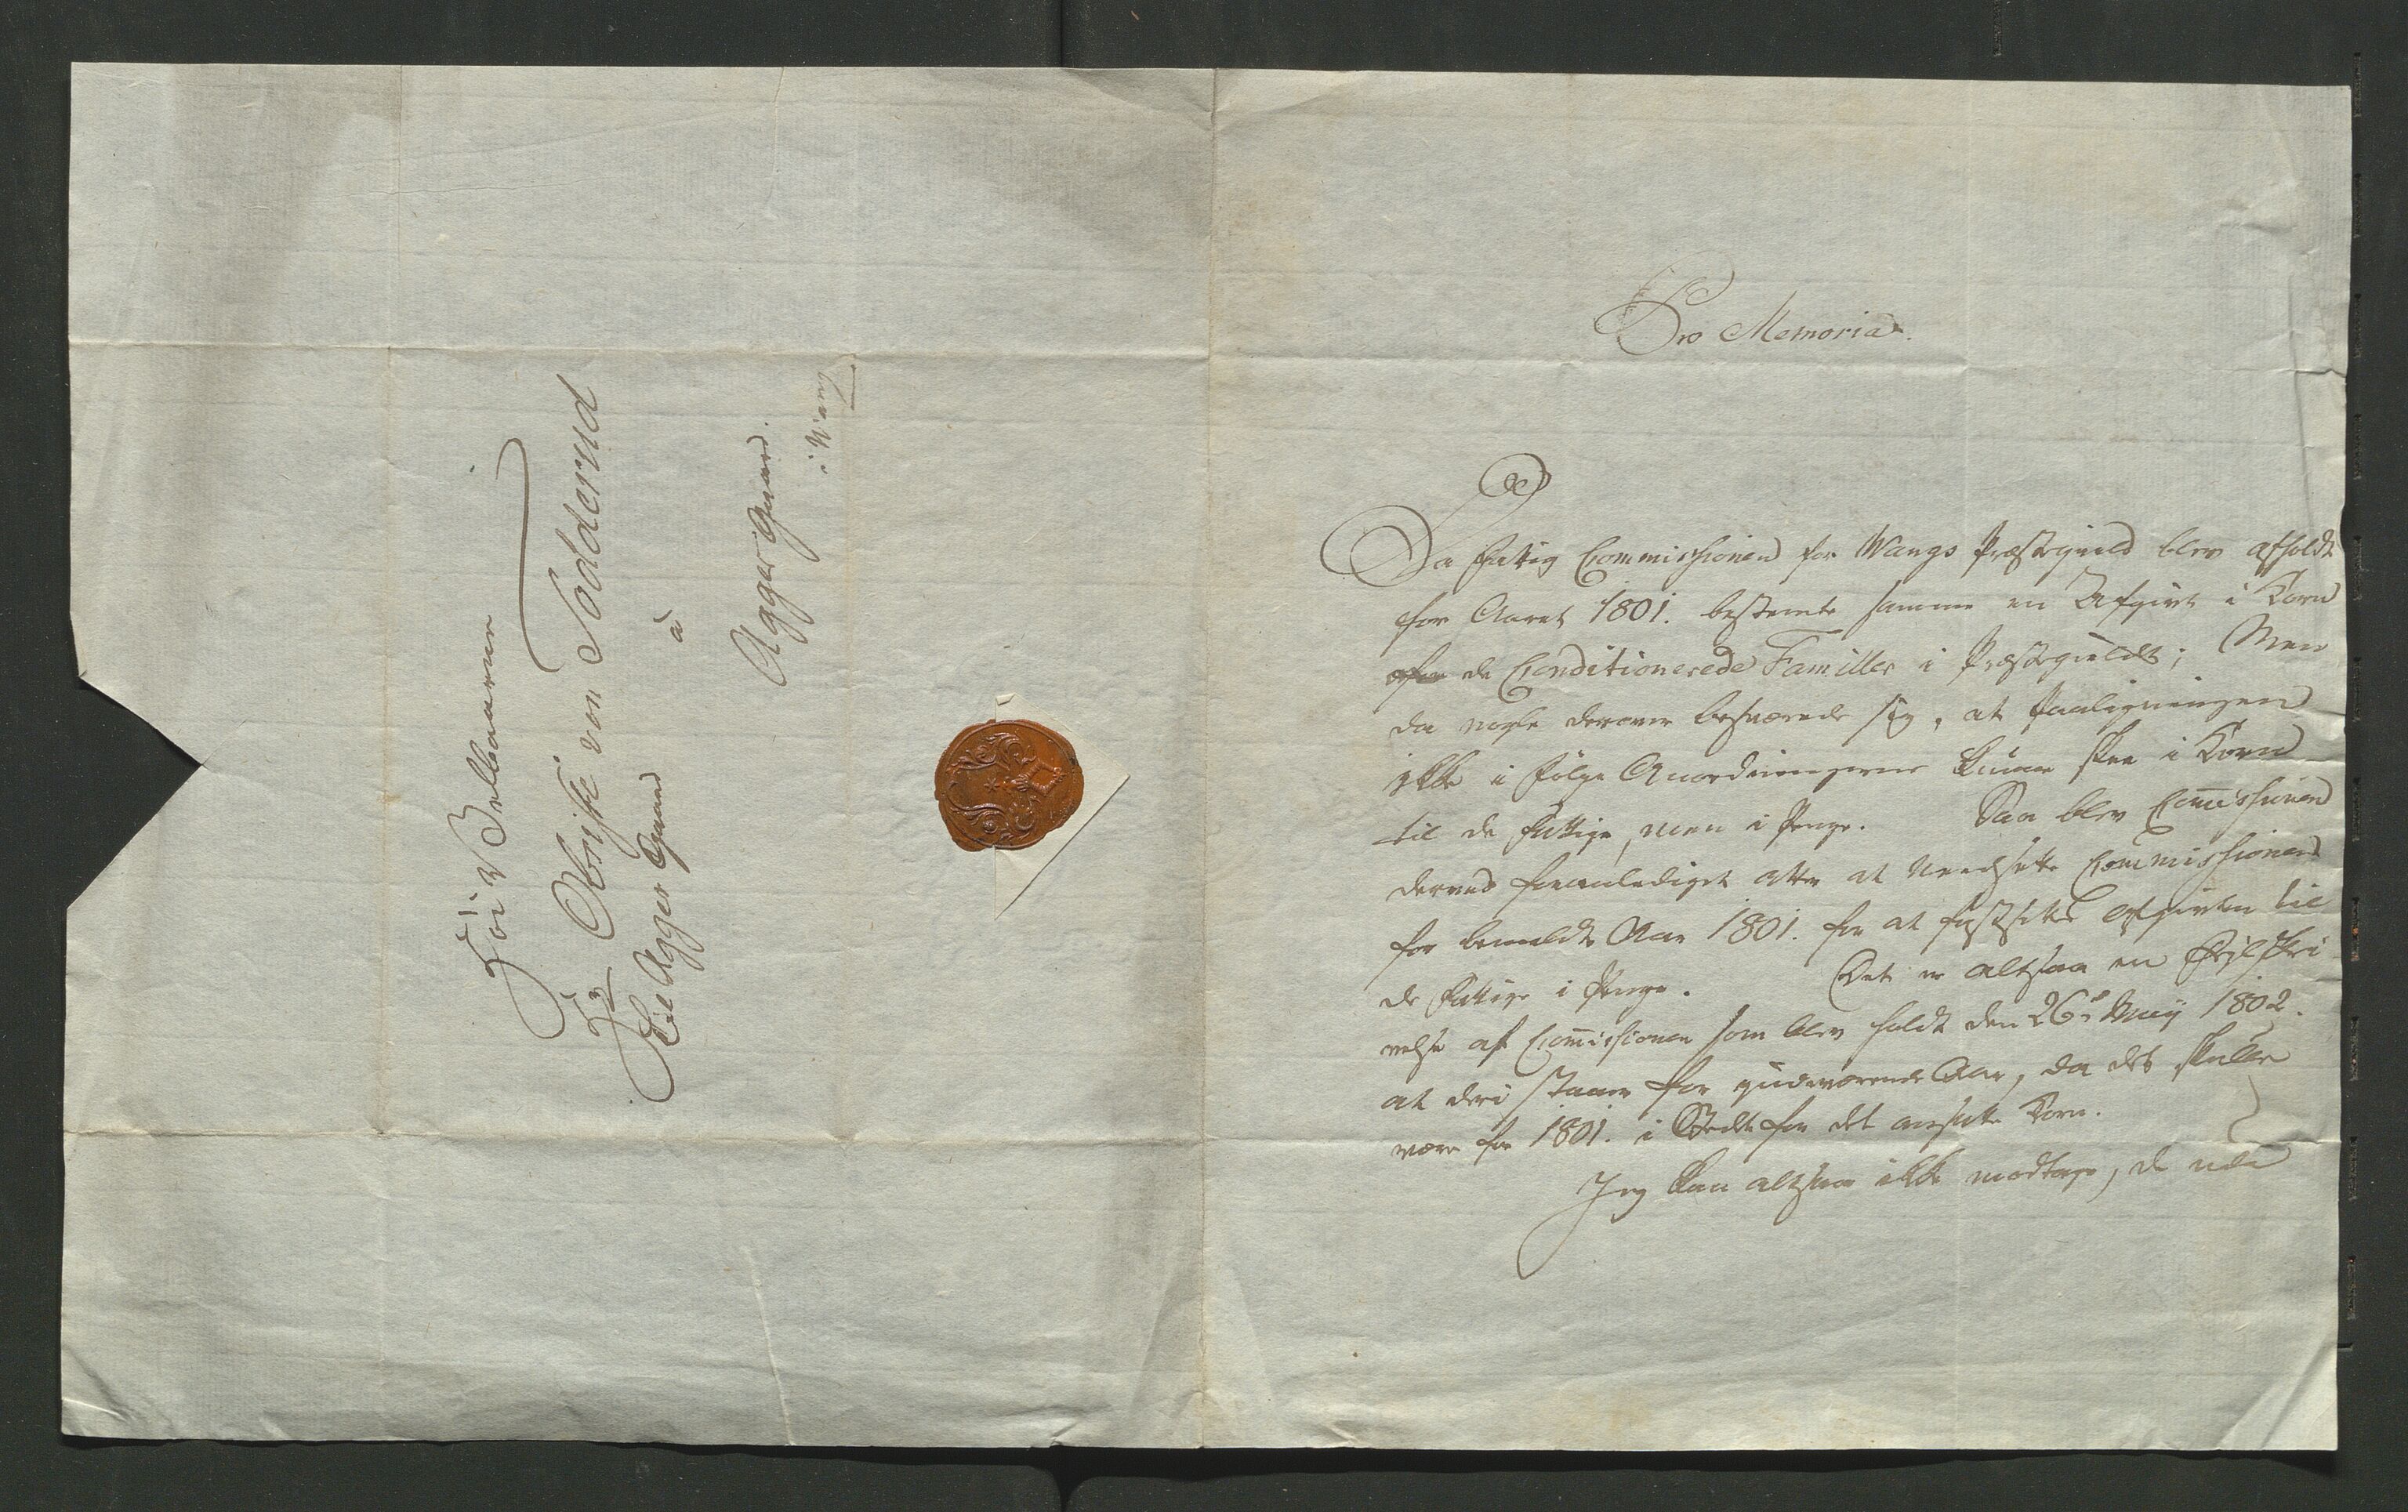 Høi Velbaarne
Hr Obriste von Sodderud
à
Til Agger Gaard
Agger Gaard.
i Wang
Pro Memoria.
Da Fattig Commissionen for Wangs Præstegield blev afholdt
for Aaret 1801. bestemte samme en Afgivt i Korn
de Conditionerede Familler i Præstegieldet; Men
da nogle derover besværede sig, at Paaligningen
ikke i Følge Anordningerne kunne skee i Korn
til de Fattige, men i Penge. Saa blev Commissionen
derved foranlediget atter at Commissionen
for bemeldte Aar 1801. for at fastsette Afgivten til
de Fattige i Penge. Det er altsaa en Feilskri
velse af Commissionen som blev holdt den 26de Maij 1802.
at deri staaer for giældværende Aar, da det skulle
være for 1801. i Stedet for det ansatte Korn.
Jeg kan altsaa ikke modtage, de udi